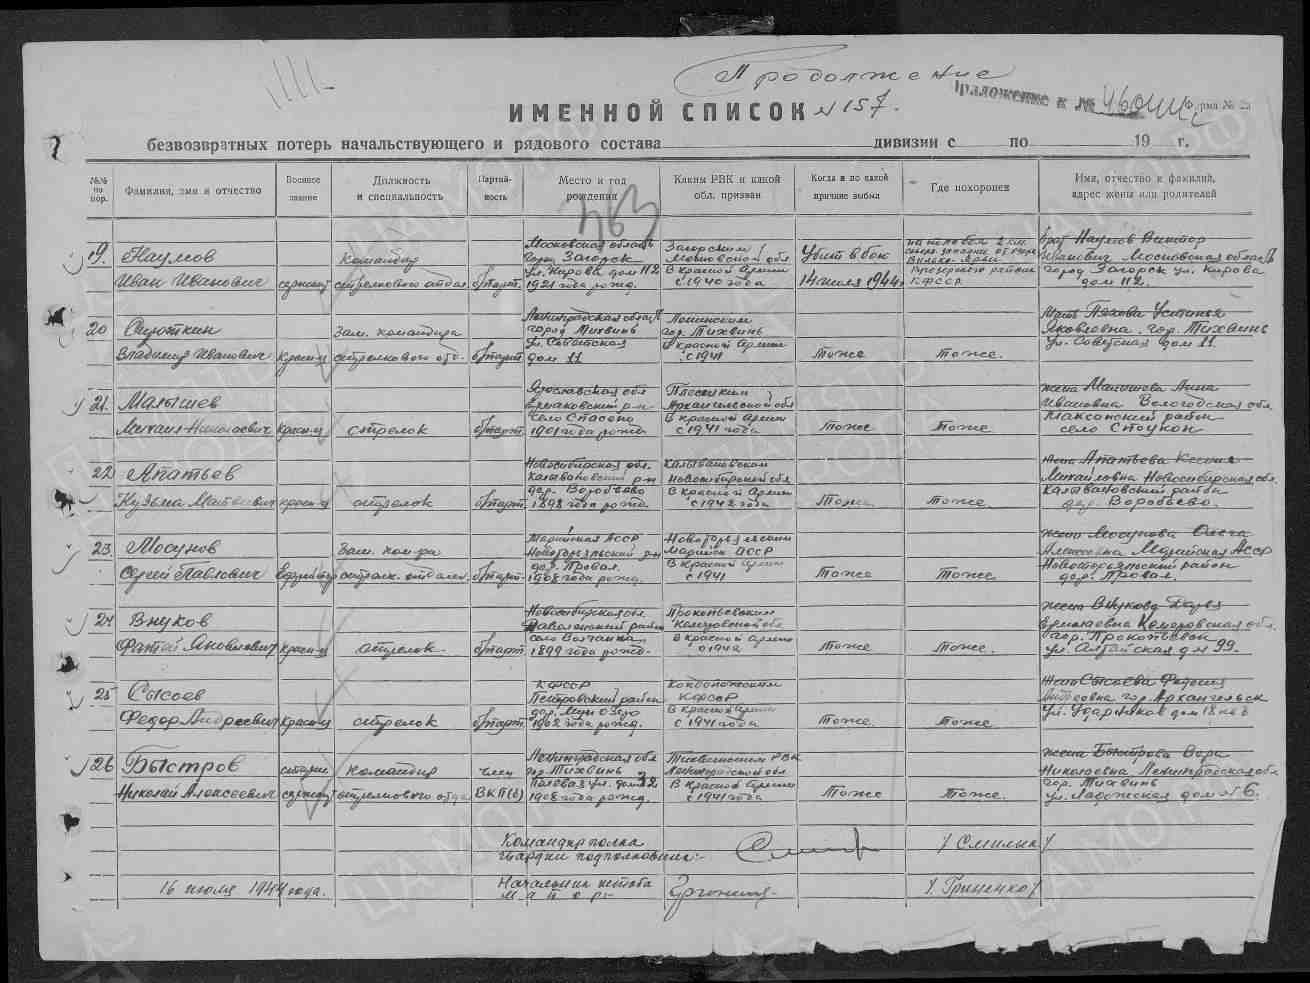 Продолжение
Приложение к №
Форма № 2а
ИМЕННОЙ СПИСОК № 157.
безвозвратных потерь начальствующего и рядового состава дивизии с по 19 г.
№№ по пор.
Фамилия, имя и отчество
Военное звание
Должность и специальность
Партийность
Место и год рождения
Каким РВК и какой обл. призван
Когда и по какой причине выбыл
Где похоронен
Имя, отчество и фамилия, адрес жены или родителей
363
19. Наумов Иван Иванович
сержант
Командир стрелкового отдел.
б/парт.
Московская область город Загорск ул. Кирова дом 112 1921 года рожд.
Загорским Московской обл В Красной Армии с 1940 года
Убит в бою 14 июля 1944г
КФССР
брат Наумов Виктор Иванович Московская область город Загорск ул. Кирова дом 112.
20 Сироткин Владимир Иванович
красн-ц
Зам. командира стрелкового отд.
б/парт
Ленинградская область город Тихвинь ул. Советская дом 11
Ленинским гор. Тихвинь В Красной Армии с 1941
Тоже
Тоже.
Яковлевна. гор. Тихвинь ул. Советская дом 11.
21. Малышев Михаил Николаевич
красн-ц
стрелок
б/парт.
Ярославская обл Ермаковский р-н село Спасово 1901 года рожд
Архангельской обл В Красной Армии с 1941 года
Тоже
Тоже
жена Малышева Анна Ивановна Вологодская обл. район село
22 Апатьев Кузьма Матвеевич
красн-ц
стрелок
б/парт
Новосибирская обл. Калывановский р-н дер. Воробьево 1898 года рожд.
Калывановским Новосибирской обл В Красной Армии с 1942 года
Тоже
Тоже
жена Апатьева Ксения Михайловна Новосибирская обл. Калывановский район дер. Воробьево.
23. Мосунов Сергей Павлович
Ефрейтор
Зам. ком-ра стрелк. отделен.
б/парт.
Марийская АССР Новоторьяльский р-н дер. Провал. 1908 года рожд.
Новоторьяльским Марийск АССР В Красной Армии с 1941
Тоже
Тоже.
жена Мосунова Ольга Алексеевна Марийская АССР Новоторьяльский район дер. Провал.
24 Внуков Яковлевич
красн-ц
стрелок.
б/парт.
Новосибирская обл район село Волчанка 1899 года рожд.
Прокопьевским Кемеровской обл В Красной Армии с 1942
Тоже
Тоже.
жена Внукова Дарья Ермолаевна Кемеровская обл. гор. Прокопьевск ул. Алтайская д № 99.
25 Сысоев Федор Андреевич
красн-ц
стрелок
б/парт.
КФССР Петровский район дер. 1902 года рожд.
Кондопожским КФССР В Красной Армии с 1941 года
Тоже
Тоже
жена Сысоева гор. Архангельск ул. Ударников дом 18 кв 6
26 Быстров Николай Алексеевич
старш сержант
Командир стрелкового отдел
член ВКП(б)
Ленинградская обл гор Тихвинь Полевая ул. дом 32 1908 года рожд.
Тихвинским РВК Ленинградской обл В Красной Армии с 1941 года
Тоже
Тоже.
жена Быстрова Вера Николаевна Ленинградская обл гор. Тихвинь ул. Ладожская дом № 6.
Командир полка
гвардии подполковник:-
/ Смилык /
16 июля 1944 года.
Начальник штаба
майор:-
/. Гриненко /
ЦАМО РФ